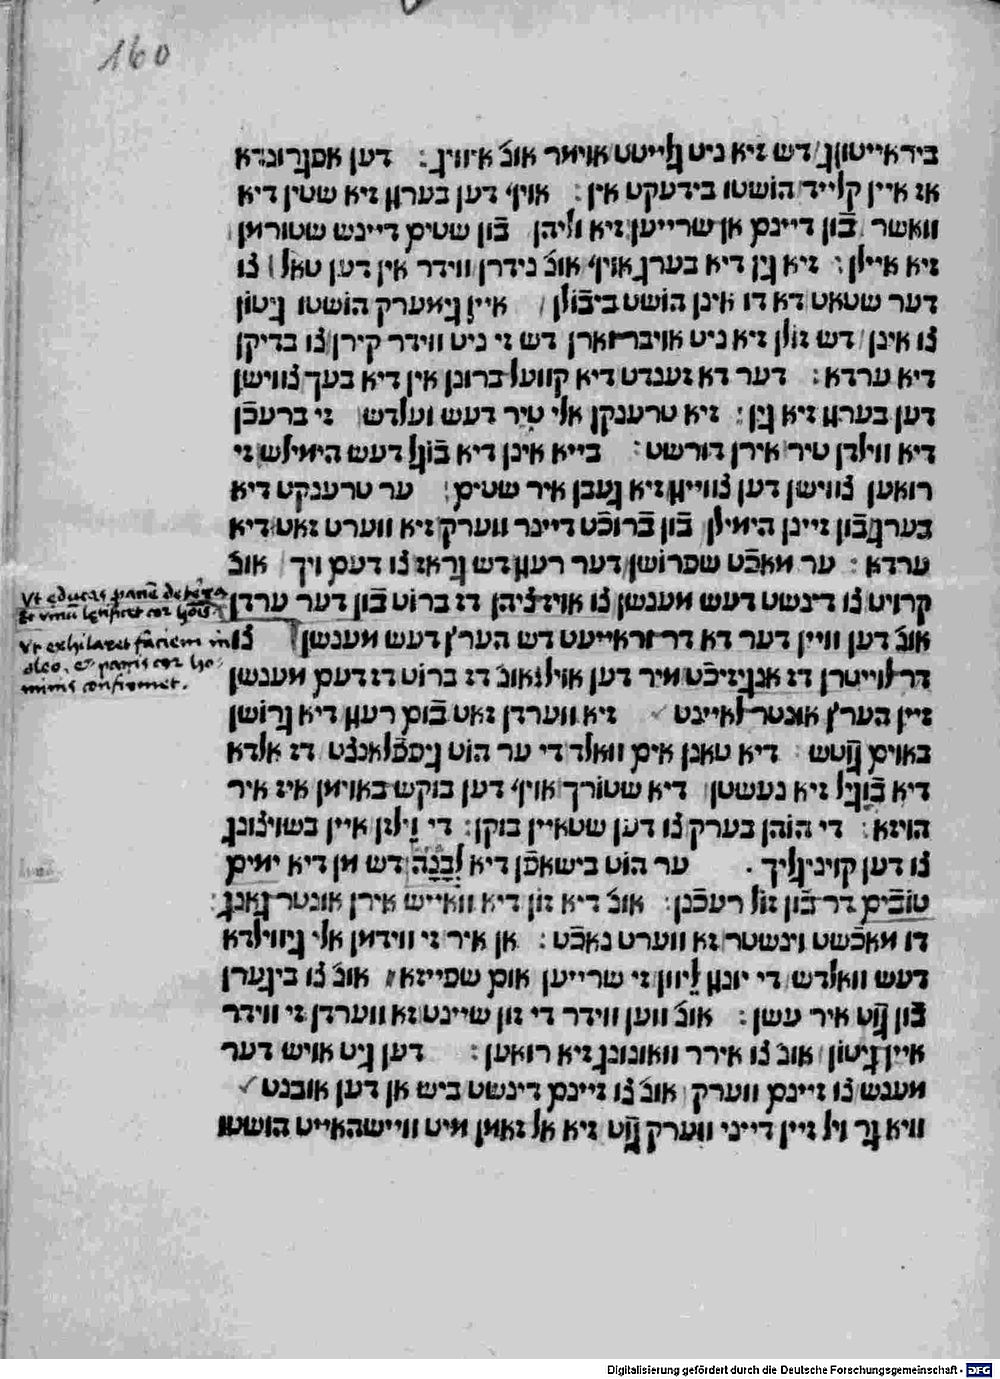 160
בידאייטונג דש זיא ניט גלייטט אימר אונ' איוויג : דען אפגרונדא
אז איין קלייד הושטו בידעקט אין : אויף דען בערגן זיא שטין דיא
וואשר בֿון דיינם אן שרייען זיא וליהן בֿון שטים דיינש שטורמן
זיא איילן : זיא גין דיא בערג אויף אונ' נידרן ווידר אין דען טאל צו
דער שטאט דא דו אינן הושט ביבֿולן איין גימערק הושטו גיטון
צו אינן דש זולן זיא ניט אויברווארן דש זי ניט ווידר קירן צו בדיקן
דיא ערדא : דער דא זענדט דיא קוועל ברונן אין דיא בעך צווישן
דען בערגן זיא גין : זיא טרענקן אלי טיר דעש ועלדש זי ברעכֿן
דיא ווילדן טיר אירן דורשט : בייא אינן דיא בֿוגל דעש הימילש זי
רואען צווישן דען צווייגן זיא געבן איר שטים : ער טרענקט דיא
בערג בֿון זיינן הימילן בֿון בֿרוכֿט דיינר ווערק זיא ווערט זאט דיא
ערדא : ער מאכֿט שפרושן דער רעגן דש גראז צו דעם ויך אונ'
קרויט צו דינשט דעש מענשן צו אויז ציהן דז ברוט בֿון דער ערדן
אונ' דען וויין דער דא דר ורֿאייעט דש הערץ דעש מענשן צו
דר לוייטרן דז אנגיזיכֿט מיר דען אוילן אונ' דז ברוט דז דעם מענשן
זיין הערץ אונטר לאיינט זיא ווערדן זאט בֿום רעגן דיא גרושן
באוים גוטש דיא טאנן אים וואלד די ער הוט גיפפֿלאנצט דז אלדא
דיא בֿוגיל זיא נעשטן דיא שטורך אויף דען בוקש באוימן איז איר
הויזא : די הוהן בערק צו דען שטאיין בוקן : די וילזן איין בשוצונג
צו דען קוניגליך . ער הוט בישאפֿן דיא לְבָנָה דש מן דיא ימים
טובֿים דר בֿון זול רעכֿנן : אונ' דיא זון דיא ווייש אירן אונטר גאנג :
דו מאכֿשט וינשטר זא ווערט נאכֿט : אן איר זי ווידמן אלי גיווילדא
דעש וואלדש די יונגן ליוון זי שרייען אום שפייזא אונ' צו ביגערן
בֿון גוט איר עשן : אונ' ווען ווידר די זון שיינט זא ווערדן זי ווידר
איין גיטון אונ' צו אירר וואונונג זיא רואען : דען גיט אויש דער
מענש צו זיינם ווערק אונ' צו זיינם דינשט ביש אן דען אובנט
וויא גר ויל זיין דייני ווערק גוט זיא אל זאמן מיט ווייזהאייט הושטו
Vt educas panē de terra
Et vinū letificet cor hoīs
Vt exhilaret faciem in
oleo, et panis cor ho-
minis confirmet.
Digitalisierung gefördert durch die Deutsche Forschungsgemeinschaft - DFG